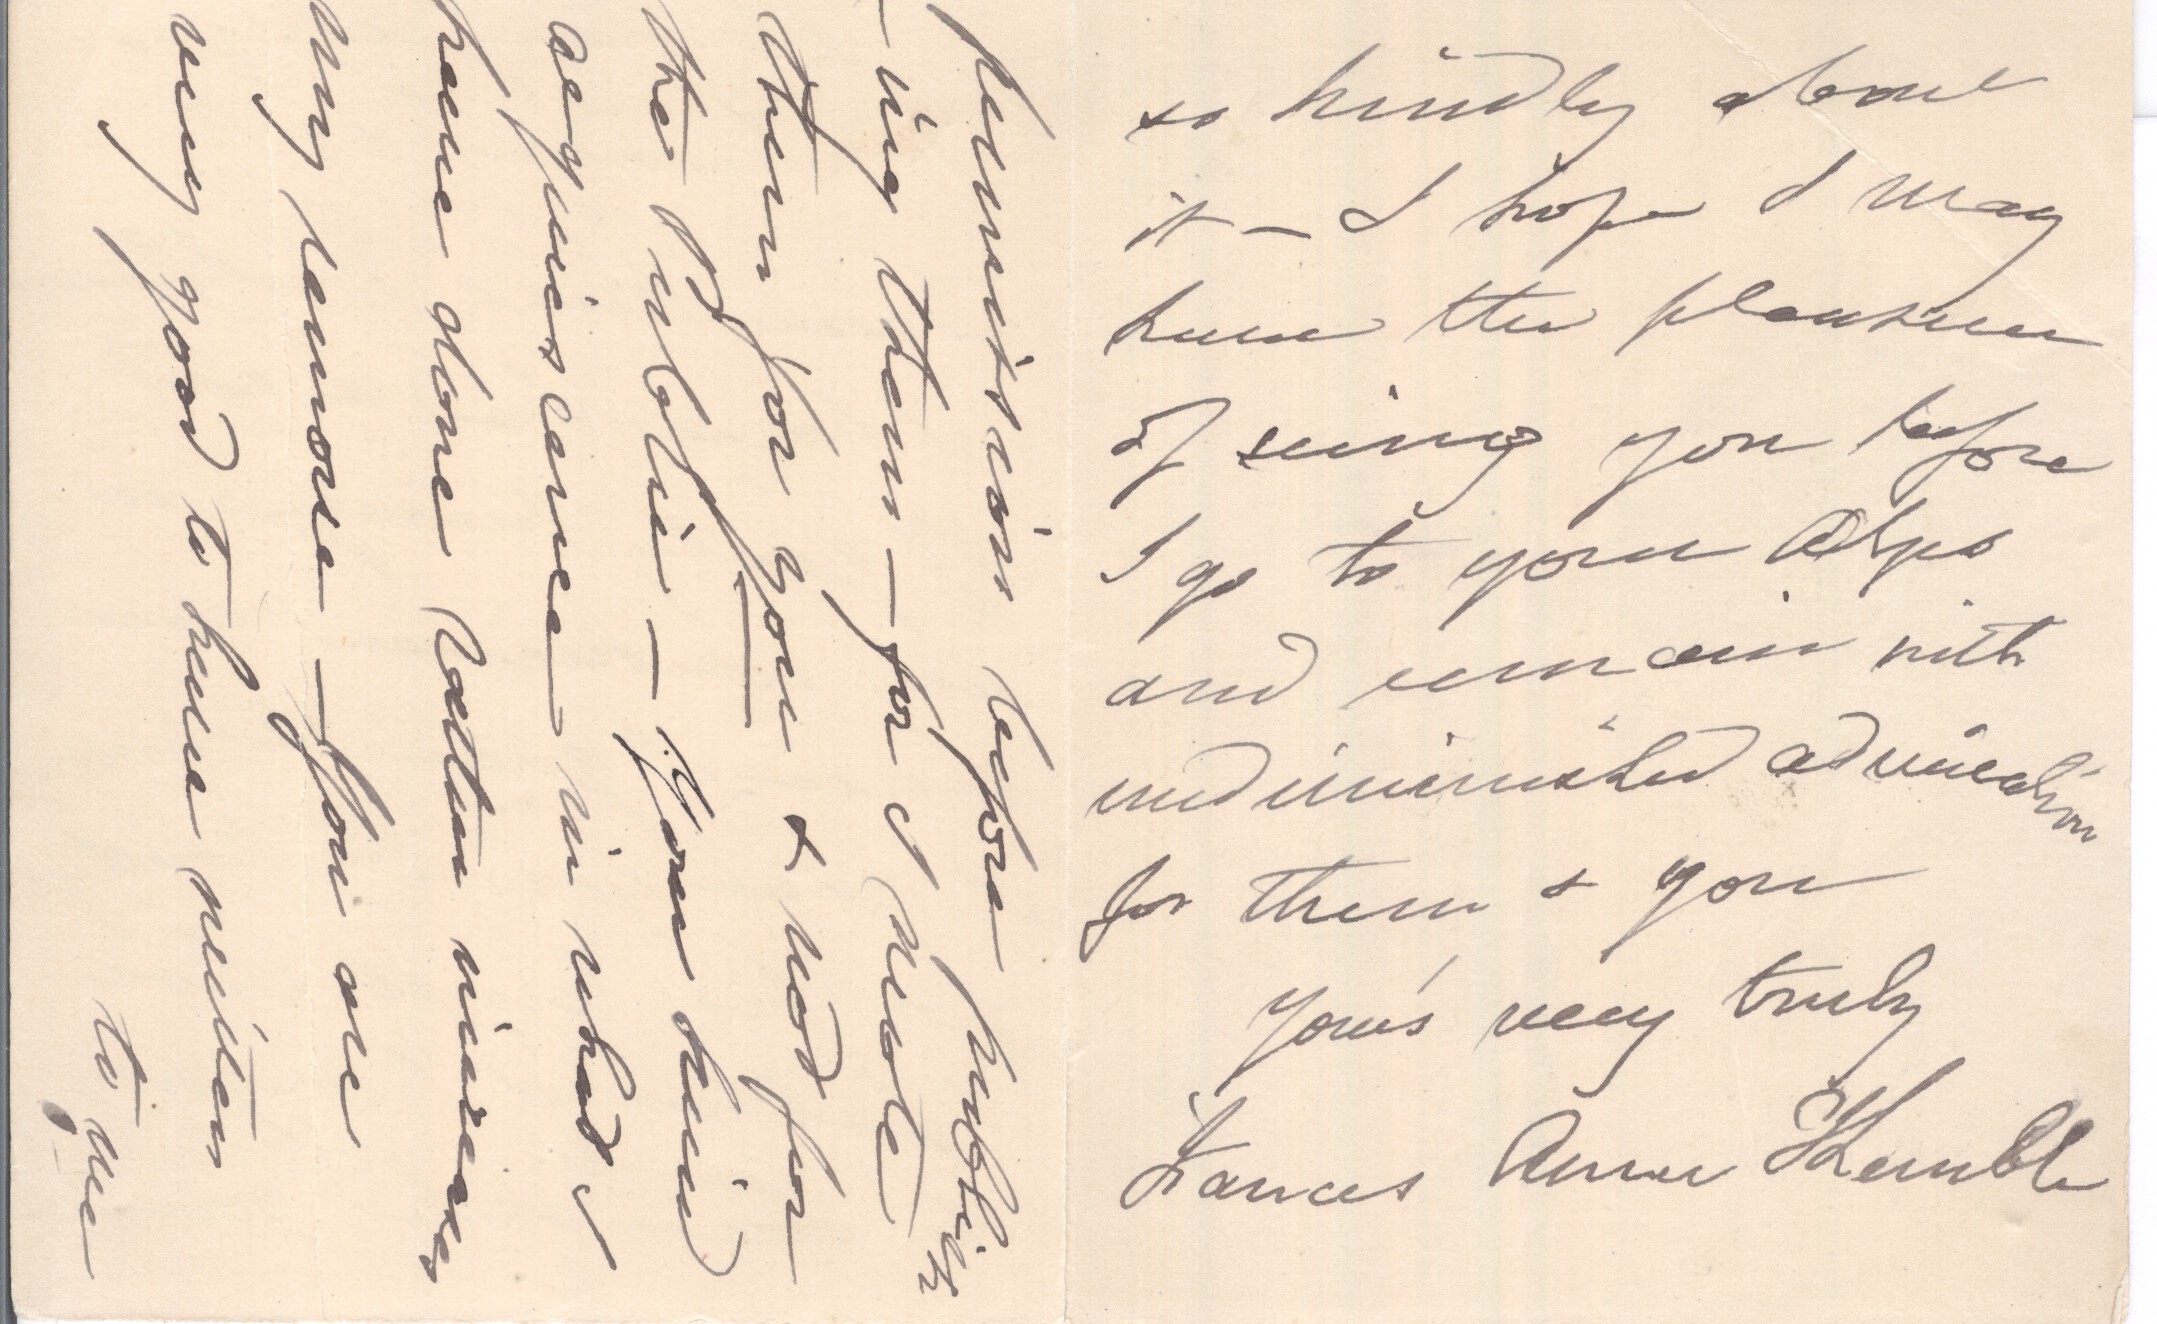 permission before publish
-ing them — for I wrote
them for you & not for
the Public — your kind
acquiescence in what I
have done latter increases
my remorse — you are
very good to have written
to me
so kindly about
it — I hope I may
have the pleasure
of seeing you before
I go to your Alps
and remain with
undiminished admiration
for them & you
your's very truly
Frances Anne Kemble